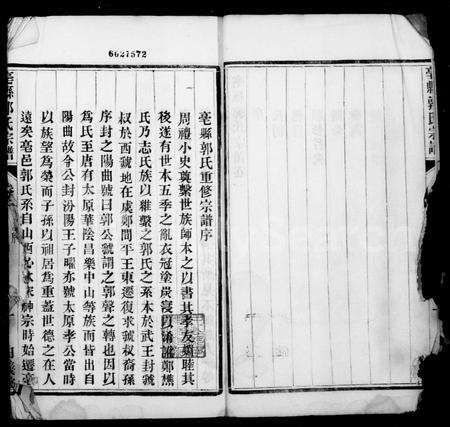 6627572
亳縣郭氏宗譜
亳縣郭氏重修宗譜序
周禮小史奠繫世族師本之以書其孝友婣睦其
後遂有世本五季之亂衣冠塗炭寖以淆訛鄭樵
氏乃志氏族以維繫之郭氏之系本於武王封虢
叔於西虢地在虞鄭間平王東遷復求虢叔裔孫
序封之陽曲號曰郭公虢謂之郭聲之轉也因以
爲氏至唐有太原華陰昌樂中山等族而皆出自
陽曲故令公封汾陽王子曜亦號太原孝公當時
以族望為榮而子孫以祖居為重蓋世德之在人
遠矣亳邑郭氏系自山西 神宗時始遷亳
亳縣郭氏宗譜 卷